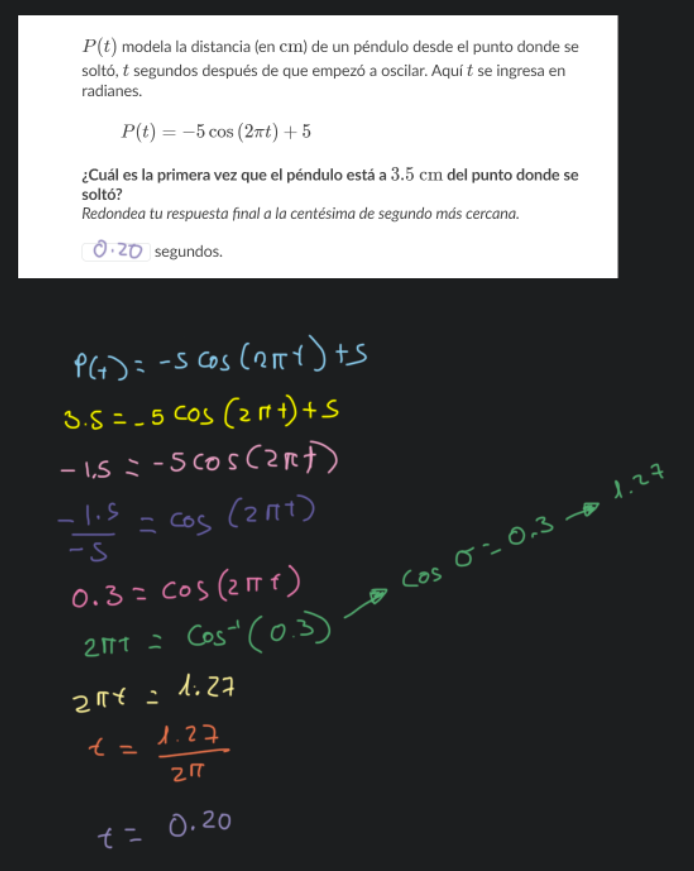 P(t) modela la distancia (en cm) de un péndulo desde el punto donde se
soltó, t segundos después de que empezó a oscilar. Aquí t se ingresa en
radianes.
P(t) = −5 cos (2πt) + 5
¿Cuál es la primera vez que el péndulo está a 3.5 cm del punto donde se
soltó?
Redondea tu respuesta final a la centésima de segundo más cercana.
0.20 segundos.
P(t) = -5 cos (2πt) + 5
3.5 = -5 cos (2πt) + 5
-1.5 = -5 cos (2πt)
-1.5/-5 = cos (2πt)
0.3 = cos (2πt)
2πt = cos⁻¹ (0.3) → cos σ = 0.3 → 1.27
2πt = 1.27
t = 1.27/2π
t = 0.20